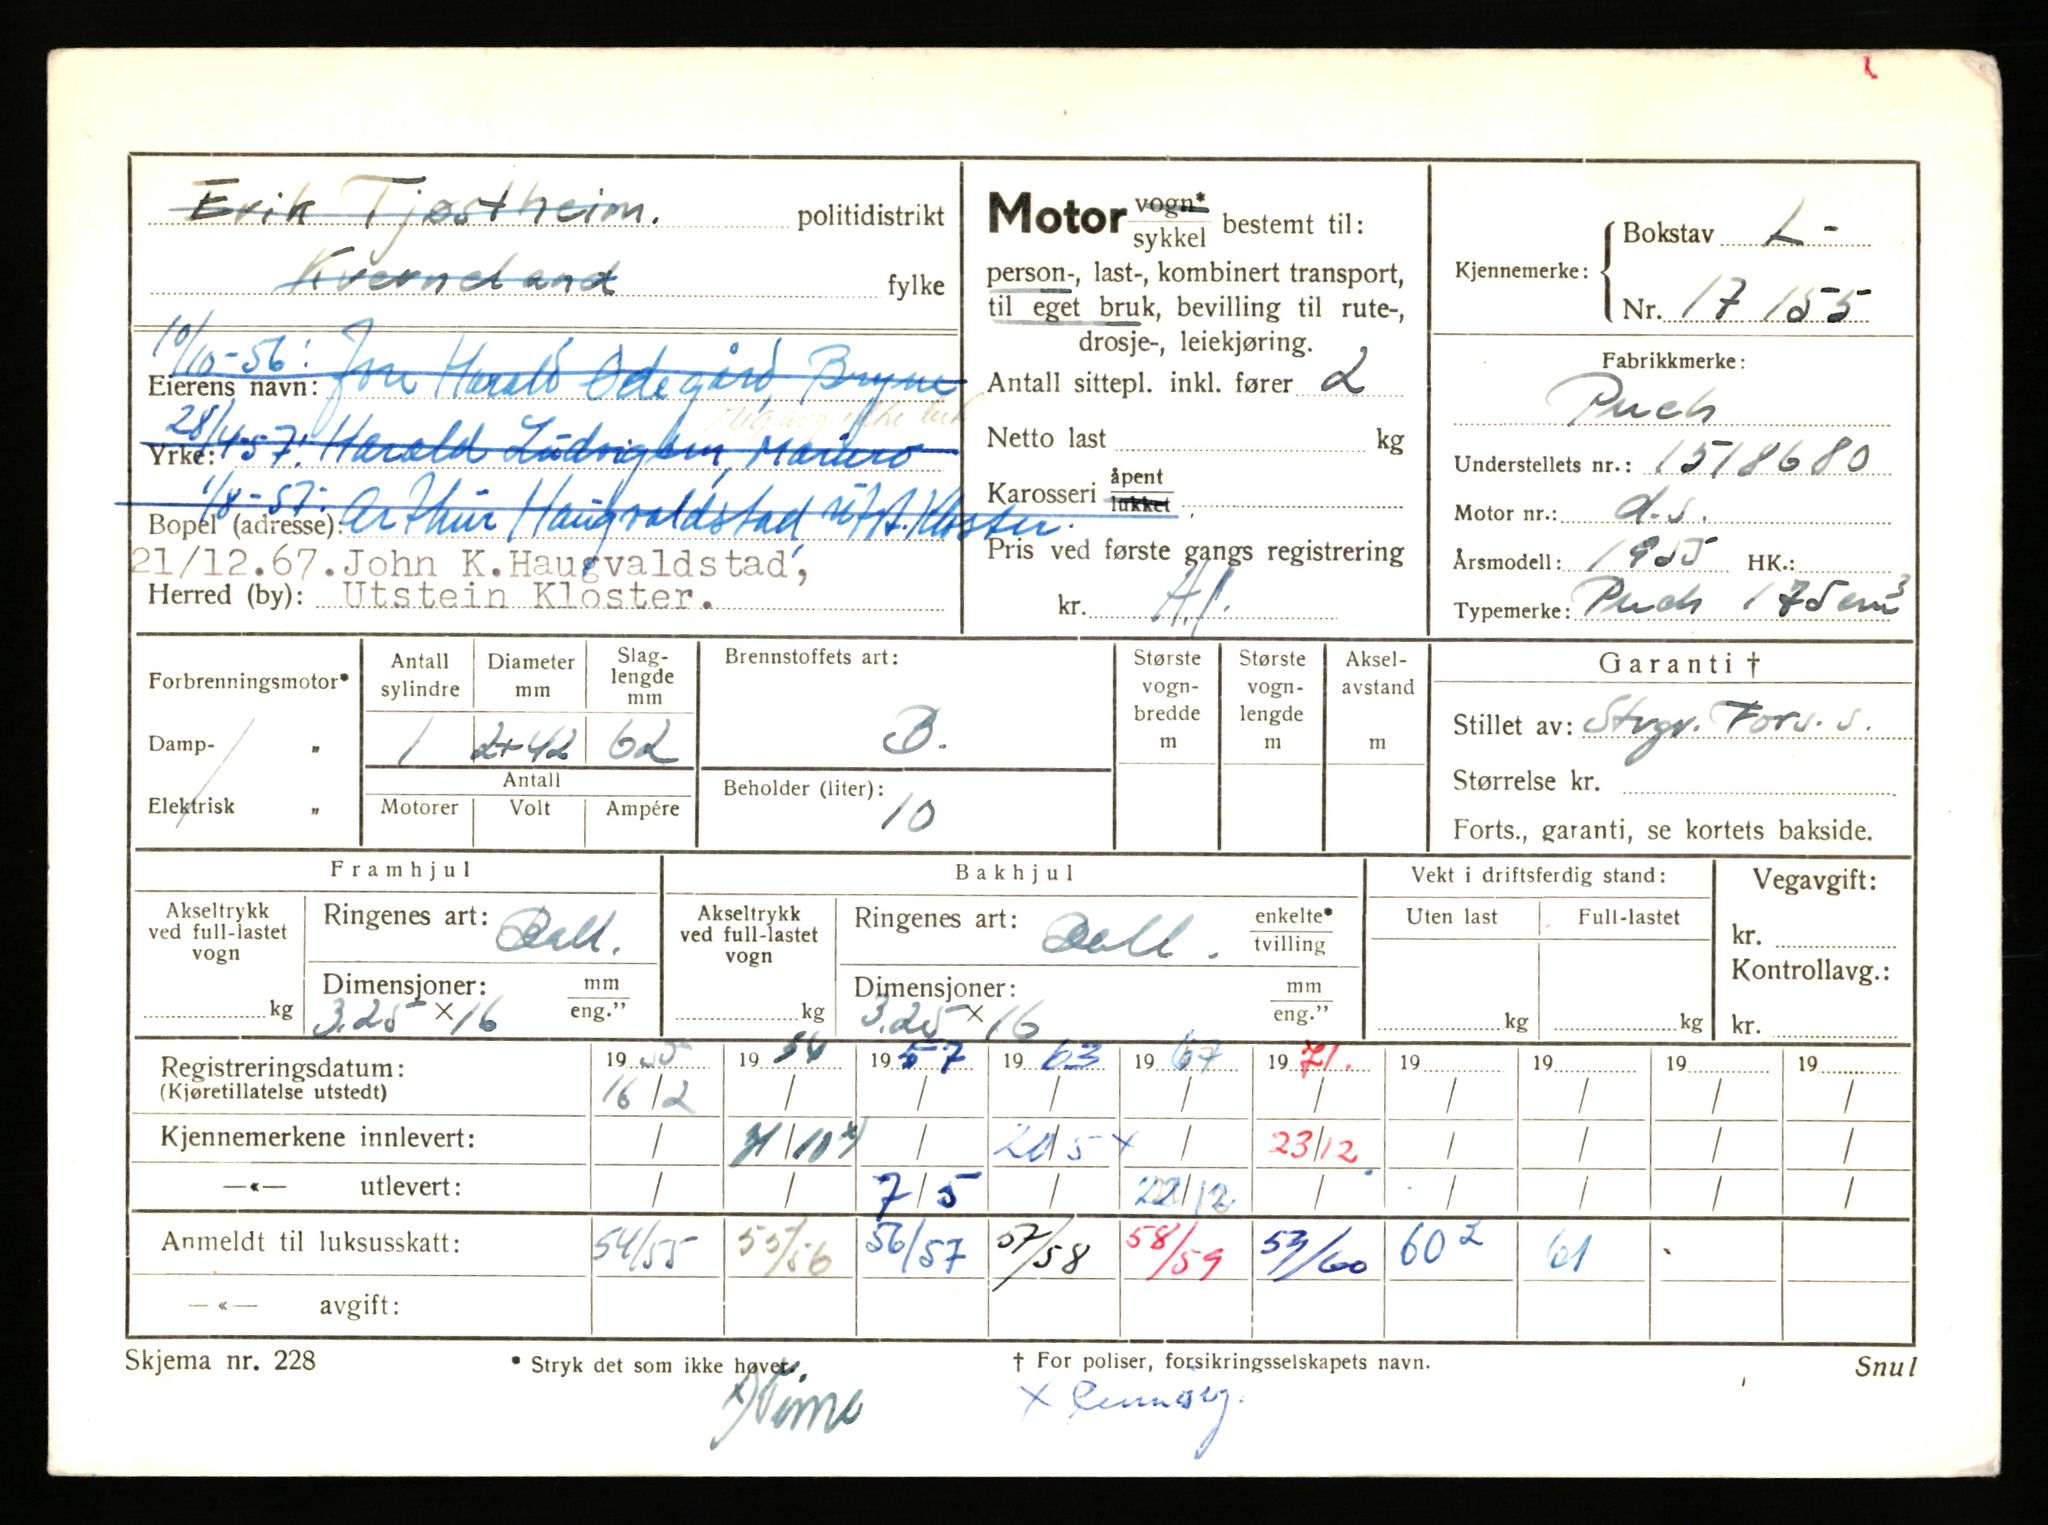 Erik Tjøstheim. politidistrikt
Kverneland fylke
10/10-56: Jon Harald Ødegård, Bryne
Eierens navn:
28/4-57: Harald Ludvigsen, Mariero
Yrke:
1/8-57: Arthur Haugvaldstad, Ut. Kloster.
Bopel (adresse):
21/12.67. John K.Haugvaldstad,
Herred (by): Utstein Kloster.
Motor vogn* / sykkel bestemt til:
person-, last-, kombinert transport,
til eget bruk, bevilling til rute-,
drosje-, leiekjøring.
Antall sittepl. inkl. fører 2
Netto last kg
Karosseri åpent / lukket
Pris ved første gangs registrering
kr.
Kjennemerke: Bokstav L-
Nr. 17155
Fabrikkmerke:
Puch
Understellets nr.: 1518680
Motor nr.: d.s.
Årsmodell: 1955 HK.:
Typemerke: Puch 175 cm³
Forbrenningsmotor*
Damp- „
Elektrisk „
Antall sylindre 1
Diameter mm 2+42
Slag-lengde mm 62
Antall
Motorer Volt Ampére
Brennstoffets art:
B.
Beholder (liter):
10
Største vogn-bredde m
Største vogn-lengde m
Aksel-avstand m
Garanti †
Stillet av: Stvgr. Fors. s.
Størrelse kr.
Forts., garanti, se kortets bakside.
Framhjul
Akseltrykk ved full-lastet vogn kg
Ringenes art: Ball.
Dimensjoner: mm / eng.”
3.25 × 16
Bakhjul
Akseltrykk ved full-lastet vogn kg
Ringenes art: Ball. enkelte* / tvilling
Dimensjoner: mm / eng.”
3.25 × 16
Vekt i driftsferdig stand:
Uten last Full-lastet
kg kg
Vegavgift:
kr.
Kontrollavg.:
kr.
Registreringsdatum: 1955 1956 1957 1963 1967 1971. 19 19 19 19
(Kjøretillatelse utstedt) 16/2 / / / / / / / / /
Kjennemerkene innlevert: / /10 x) / 20/5 x / 23/12 / / / /
—«— utlevert: / / 7/5 / 22/12 / / / / /
Anmeldt til luksusskatt: 54/55 55/56 56/57 57/58 58/59 59/60 60 2 61
—«— avgift:
Skjema nr. 228 * Stryk det som ikke høver. † For poliser, forsikringsselskapets navn. Snul
x) Time
x Rennesøy.